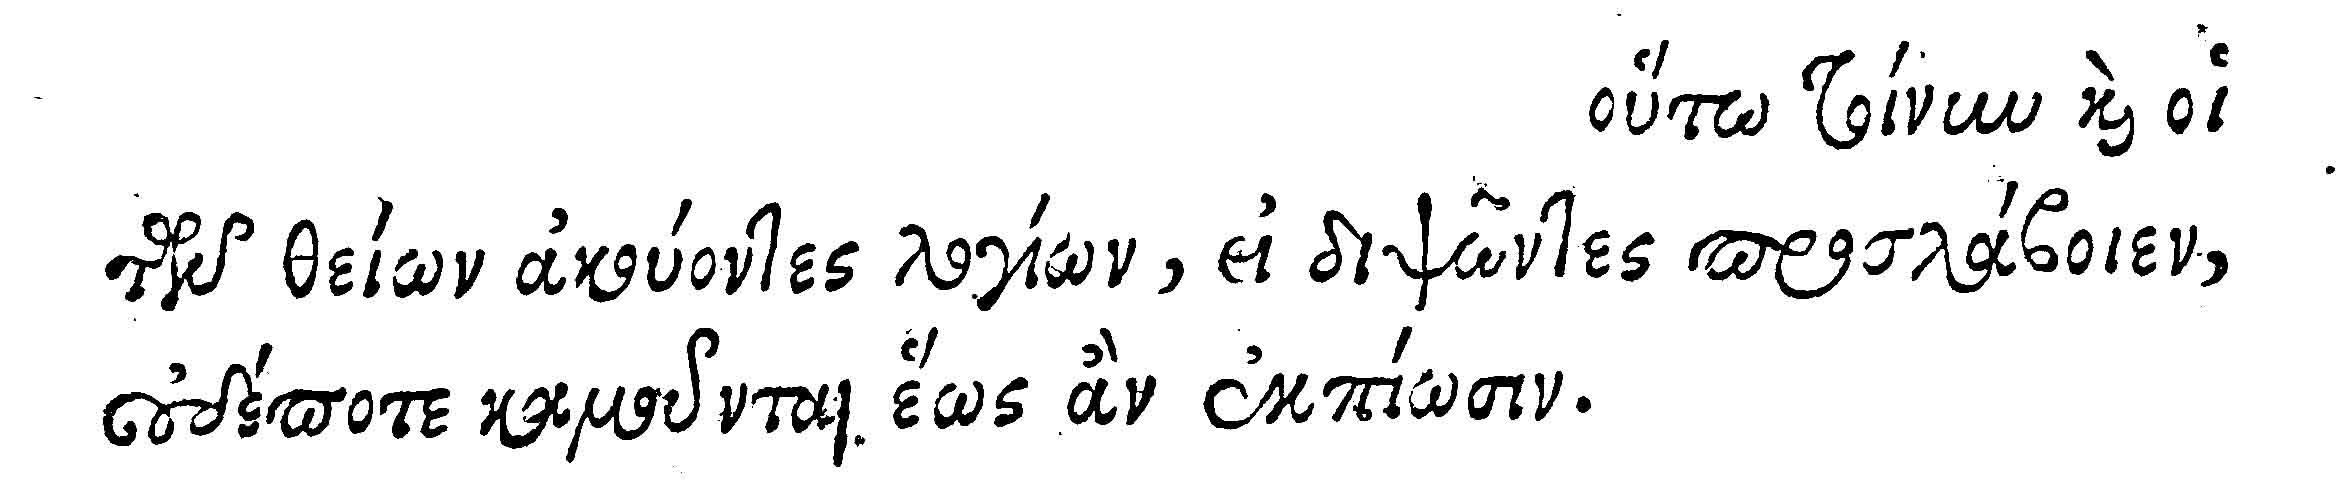 οὕτω τοίνυν ϗ̀ οἱ
τῶν θείων ἀκούοντες λογίων, εἰ διψῶντες προσλάβοιεν,
οὐδέποτε καμοῦνται ἕως ἂν ἐκπίωσιν.